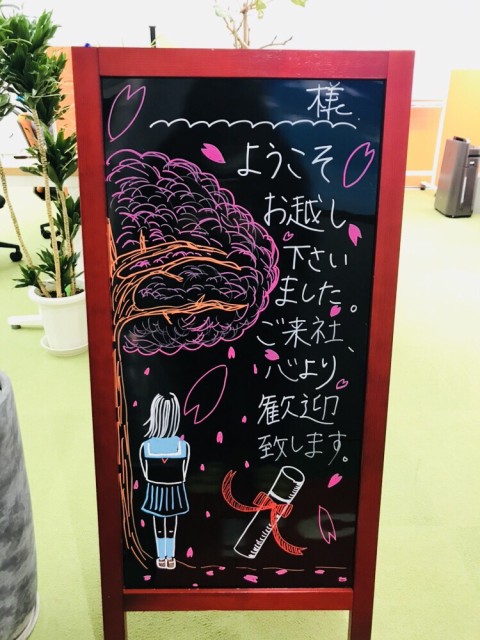 様
ようこそ
お越し
下さい
ました。
ご来社、
心より
歓迎
致します。